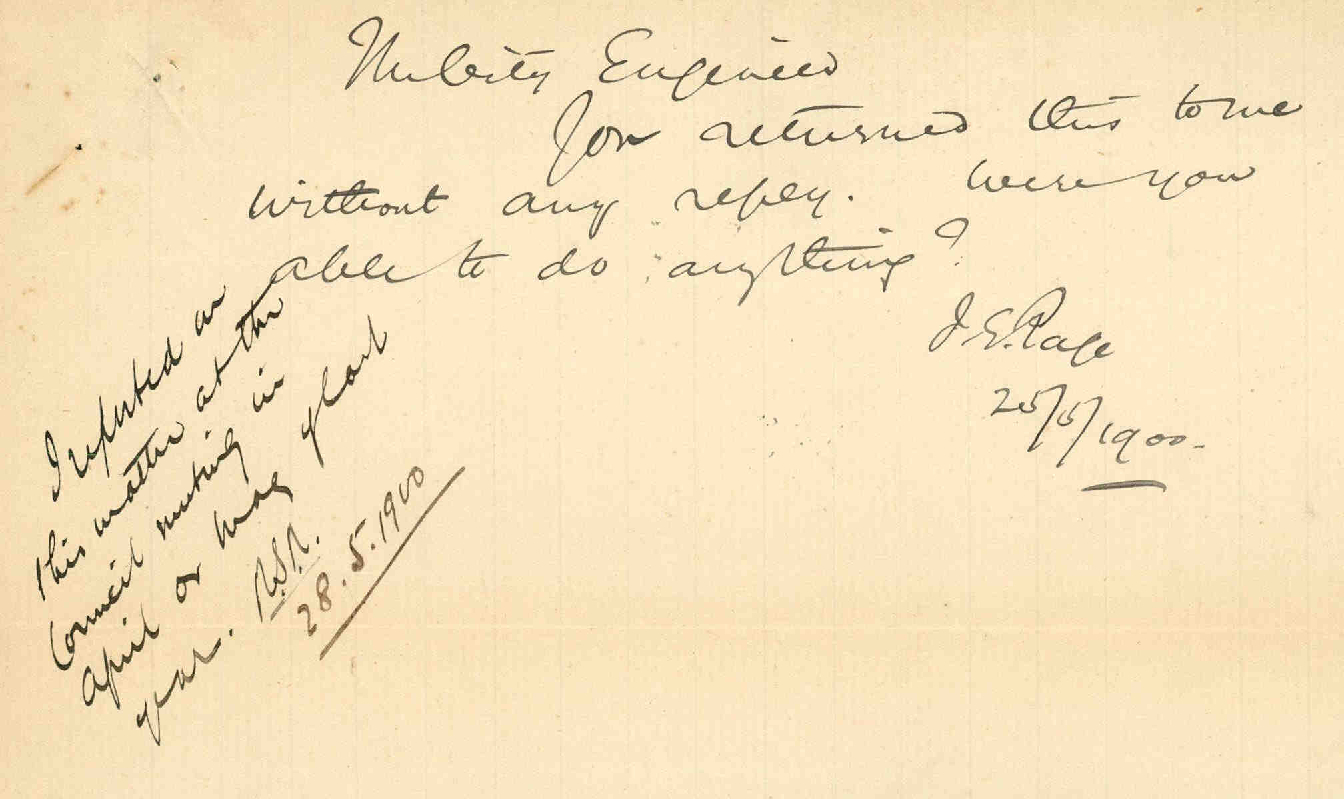 The City Engineer
You returned this to me
without any reply. Were you
able to do anything?
J. E. Page
25/5/1900.
I reported on
this matter at the
Council meeting in
April or May of last
year. R.S.R.
28.5.1900